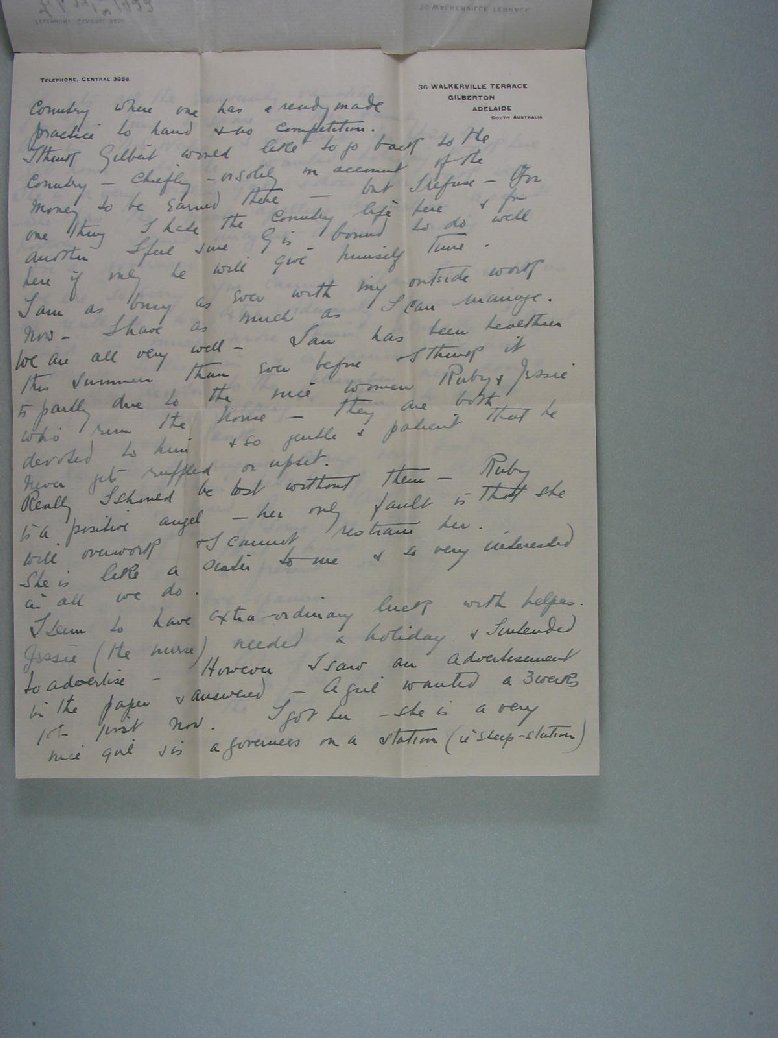 TELEPHONE, CENTRAL 3698.
36 WALKERVILLE TERRACE
GILBERTON
ADELAIDE
SOUTH AUSTRALIA
country where one has a readymade
practice to hand & no competition.
I think Gilbert would like to go back to the
country – chiefly – or solely on account of the
money to be earned there – but I refuse – (For
one thing I hate the country life here & for
another I feel sure G is bound to do well
here if only he will give himself time.
I am as busy as ever with my outside work
now – I have as much as I can manage.
We are all very well – Ian has been healthier
this summer than ever before & I think it
is partly due to the nice women Ruby & Jessie
who run the home – they are both
devoted to him & so gentle & patient that he
never gets ruffled or upset.
Really I should be lost without them – Ruby
is a positive angel – her only fault is that she
will overwork & I cannot restrain her.
She is like a sister to me & so very interested
in all we do.
I seem to have extra-ordinary luck with helpers.
Jessie (the nurse) needed a holiday & I intended
to advertise – However I saw an advertisement
in the paper & answered – A girl wanted a 3 weeks
just now. I got her – she is a very
nice girl & is a governess on a station (ie sheep-station)